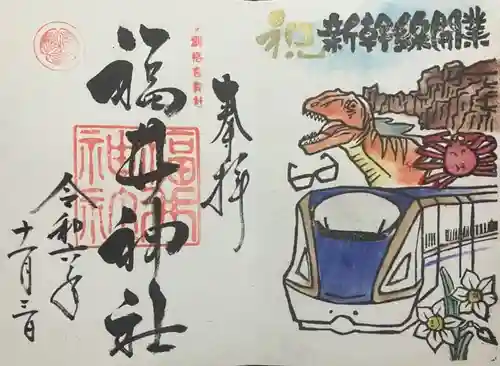 祝 新幹線開業
奉拝
福井神社
福井神社
令和六年
十一月三日